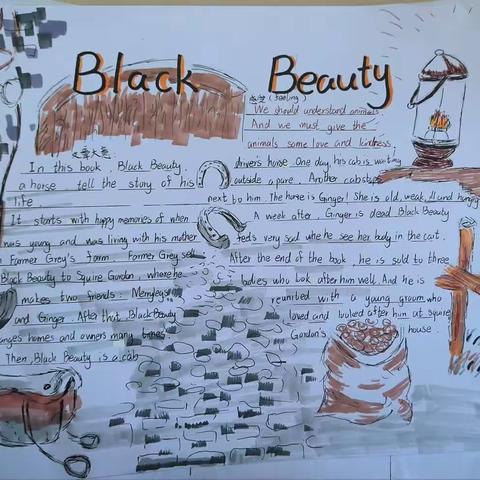 Black Beauty
感受 (feeling)
We should understand animals.
And we must give the
animals some love and kindness.
文章大意
In this book, Black Beauty,
a horse tell the story of his
life.
It starts with happy memories of when
was young and was living with his mother
Farmer Grey's Farm. Farmer Grey sell
Black Beauty to Squire Gordon, where he
makes two friends: Merrylegs
and Ginger. After that, Black Beauty
anges homes and owners many times.
Then, Black Beauty is a cab
driver's horse. One day, his cab is waiting
outside a pare. Another cab stops
next to him. The horse is Ginger! She is old, weak, ill and hungry
A week after, Ginger is dead. Black Beauty
feels very sad whe he see her body in the cart.
After the end of the book, he is sold to three
ladies who look after him well. And he is
reunited with a young groom who
loved and looked after him at square
Gordon's house.